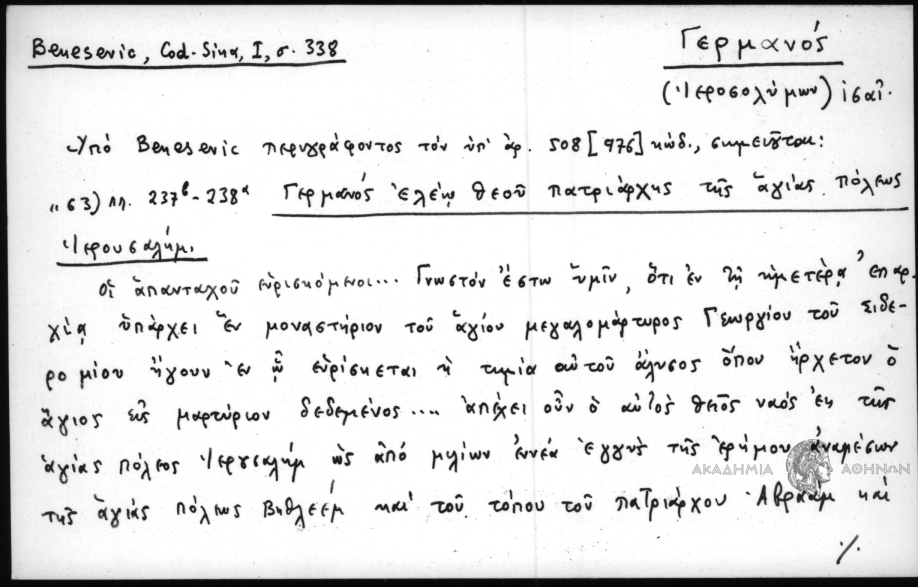 Benesevic, Cod-Sina, I, σ. 338
Γερμανός
(Ἱεροσολύμων) ἰσαϊ.
Ὑπό Benesevic περιγράφοντος τόν ὑπ' ἀρ. 508 [976] κώδ., σημειοῦται:
"63) πλ. 237β - 238α Γερμανός ἐλέῳ θεοῦ πατριάρχης τῆς ἁγίας πόλεως
Ἱερουσαλήμ.
Οἱ ἁπανταχοῦ εὑρισκόμενοι... Γνωστόν ἔστω ὑμῖν, ὅτι ἐν τῇ ἡμετέρᾳ ἐπαρ-
χίᾳ ὑπάρχει ἕν μοναστήριον τοῦ ἁγίου μεγαλομάρτυρος Γεωργίου τοῦ Σιδε-
ρομίου ἤγουν ἐν ᾧ εὑρίσκεται ἡ τιμία αὐτοῦ ἅλυσος ὅπου ἤρχετον ὁ
ἅγιος εἰς μαρτύριον δεδεμένος.... ἀπέχει οὖν ὁ αὐτός θεῖος ναός ἐκ τῆς
ἁγίας πόλεος Ἱερουσαλήμ ὡς ἀπό μιλίων ἐννέα ἐγγύς τῆς ἐρήμου ἀναμέσων
τῆς ἁγίας πόλεως Βηθλεέμ καί τοῦ τόπου τοῦ πατριάρχου Ἀβραάμ καί
./.
ΑΚΑΔΗΜΙΑ ΑΘΗΝΩΝ